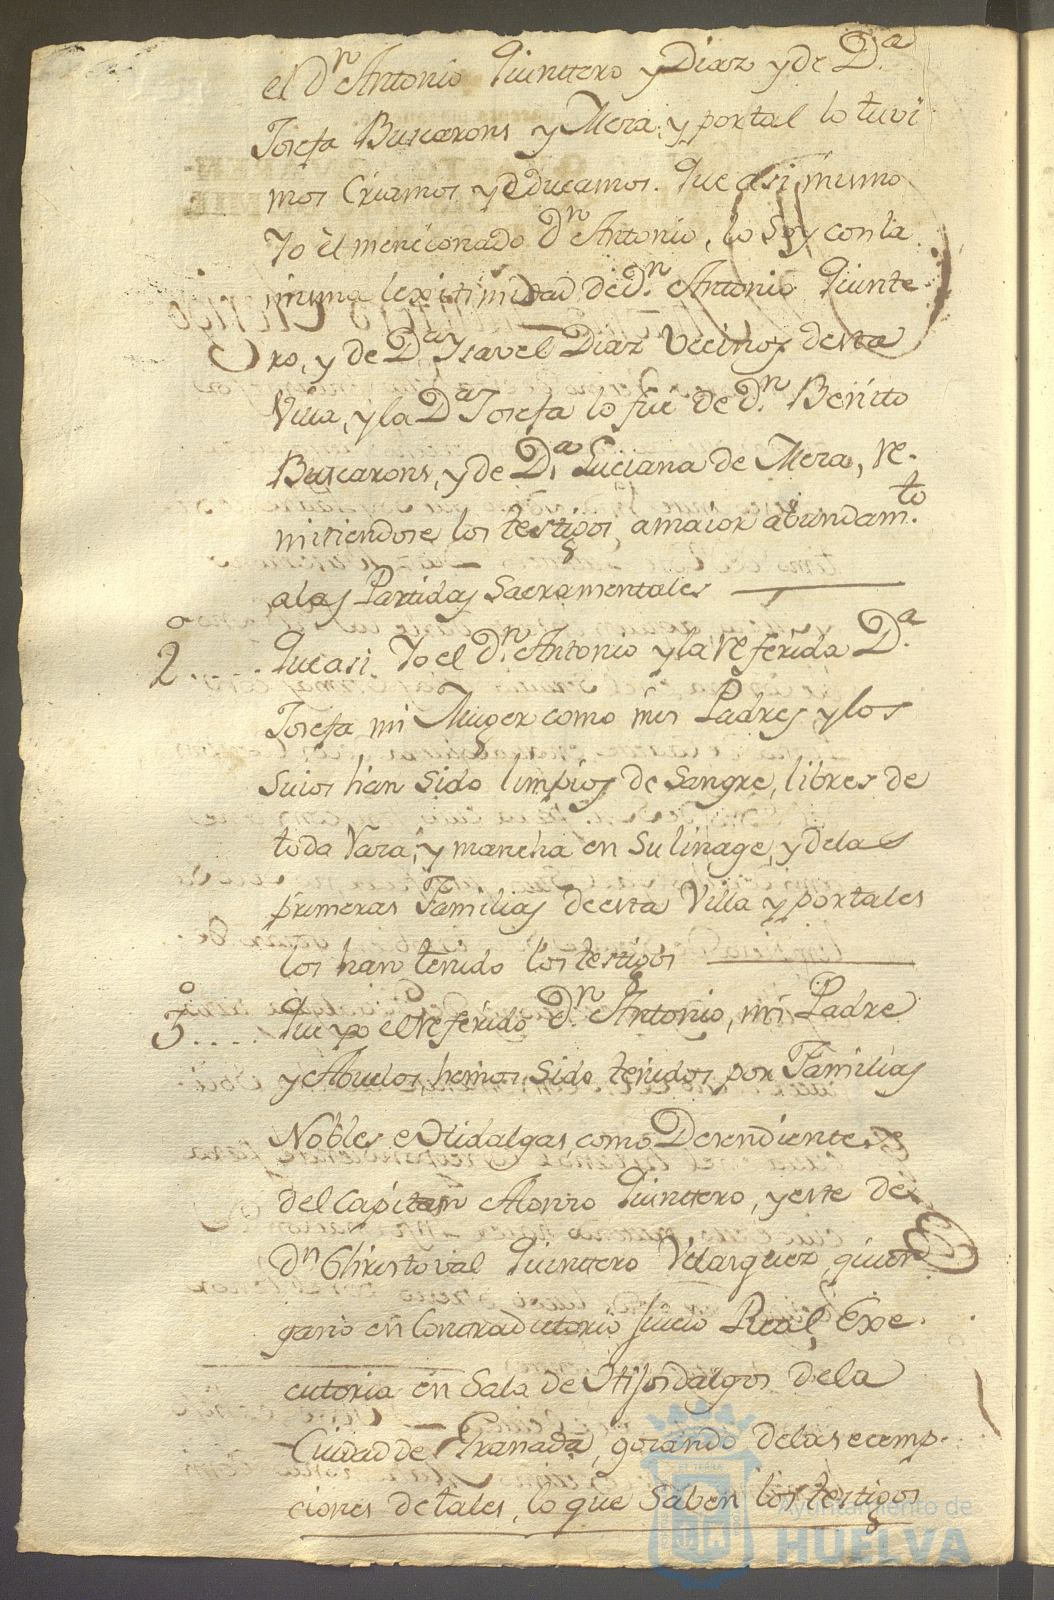 el Dn. Antonio Quintero y Diaz y de Da.
Josefa Buscarons y Mera, y por tal lo tuvi
mos Criamos y Educamos. Que asi mismo
Yo el mencionado Dn. Antonio, lo soy con la
misma lexitimidad de Dn. Antonio Quinte
ro, y de Da. Ysavel Diaz Vecinos de esta
Villa, y la Da. Josefa lo fue de Dn. Benito
Buscarons, y de Da. Luciana de Mera, re-
mitiendose los testigos, a maior abundamto.
a las Partidas Sacramentales
2o .... Que asi Yo el Dn. Antonio y la referida Da.
Josefa mi Muger como mis Padres y los
suios han sido limpios de sangre, libres de
toda Raza, y mancha en su linage, y de las
primeras Familias de esta Villa y por tales
los han tenido los testigos
3o .... Que yo el referido Dn. Antonio, mi Padre
y Abuelos hemos sido tenidos por Familias
Nobles e Hidalgas como Desendientes
del Capitan Alonso Quintero, y este de
Dn. Christoval Quintero Velasquez, quien
gano en Contradictorio Juicio Real Exe-
cutoria en Sala de Hijosdalgos de la
Ciudad de Granada, gozando de las ecemp-
ciones de tales, lo que saben los testigos
Ayuntamiento de
HUELVA